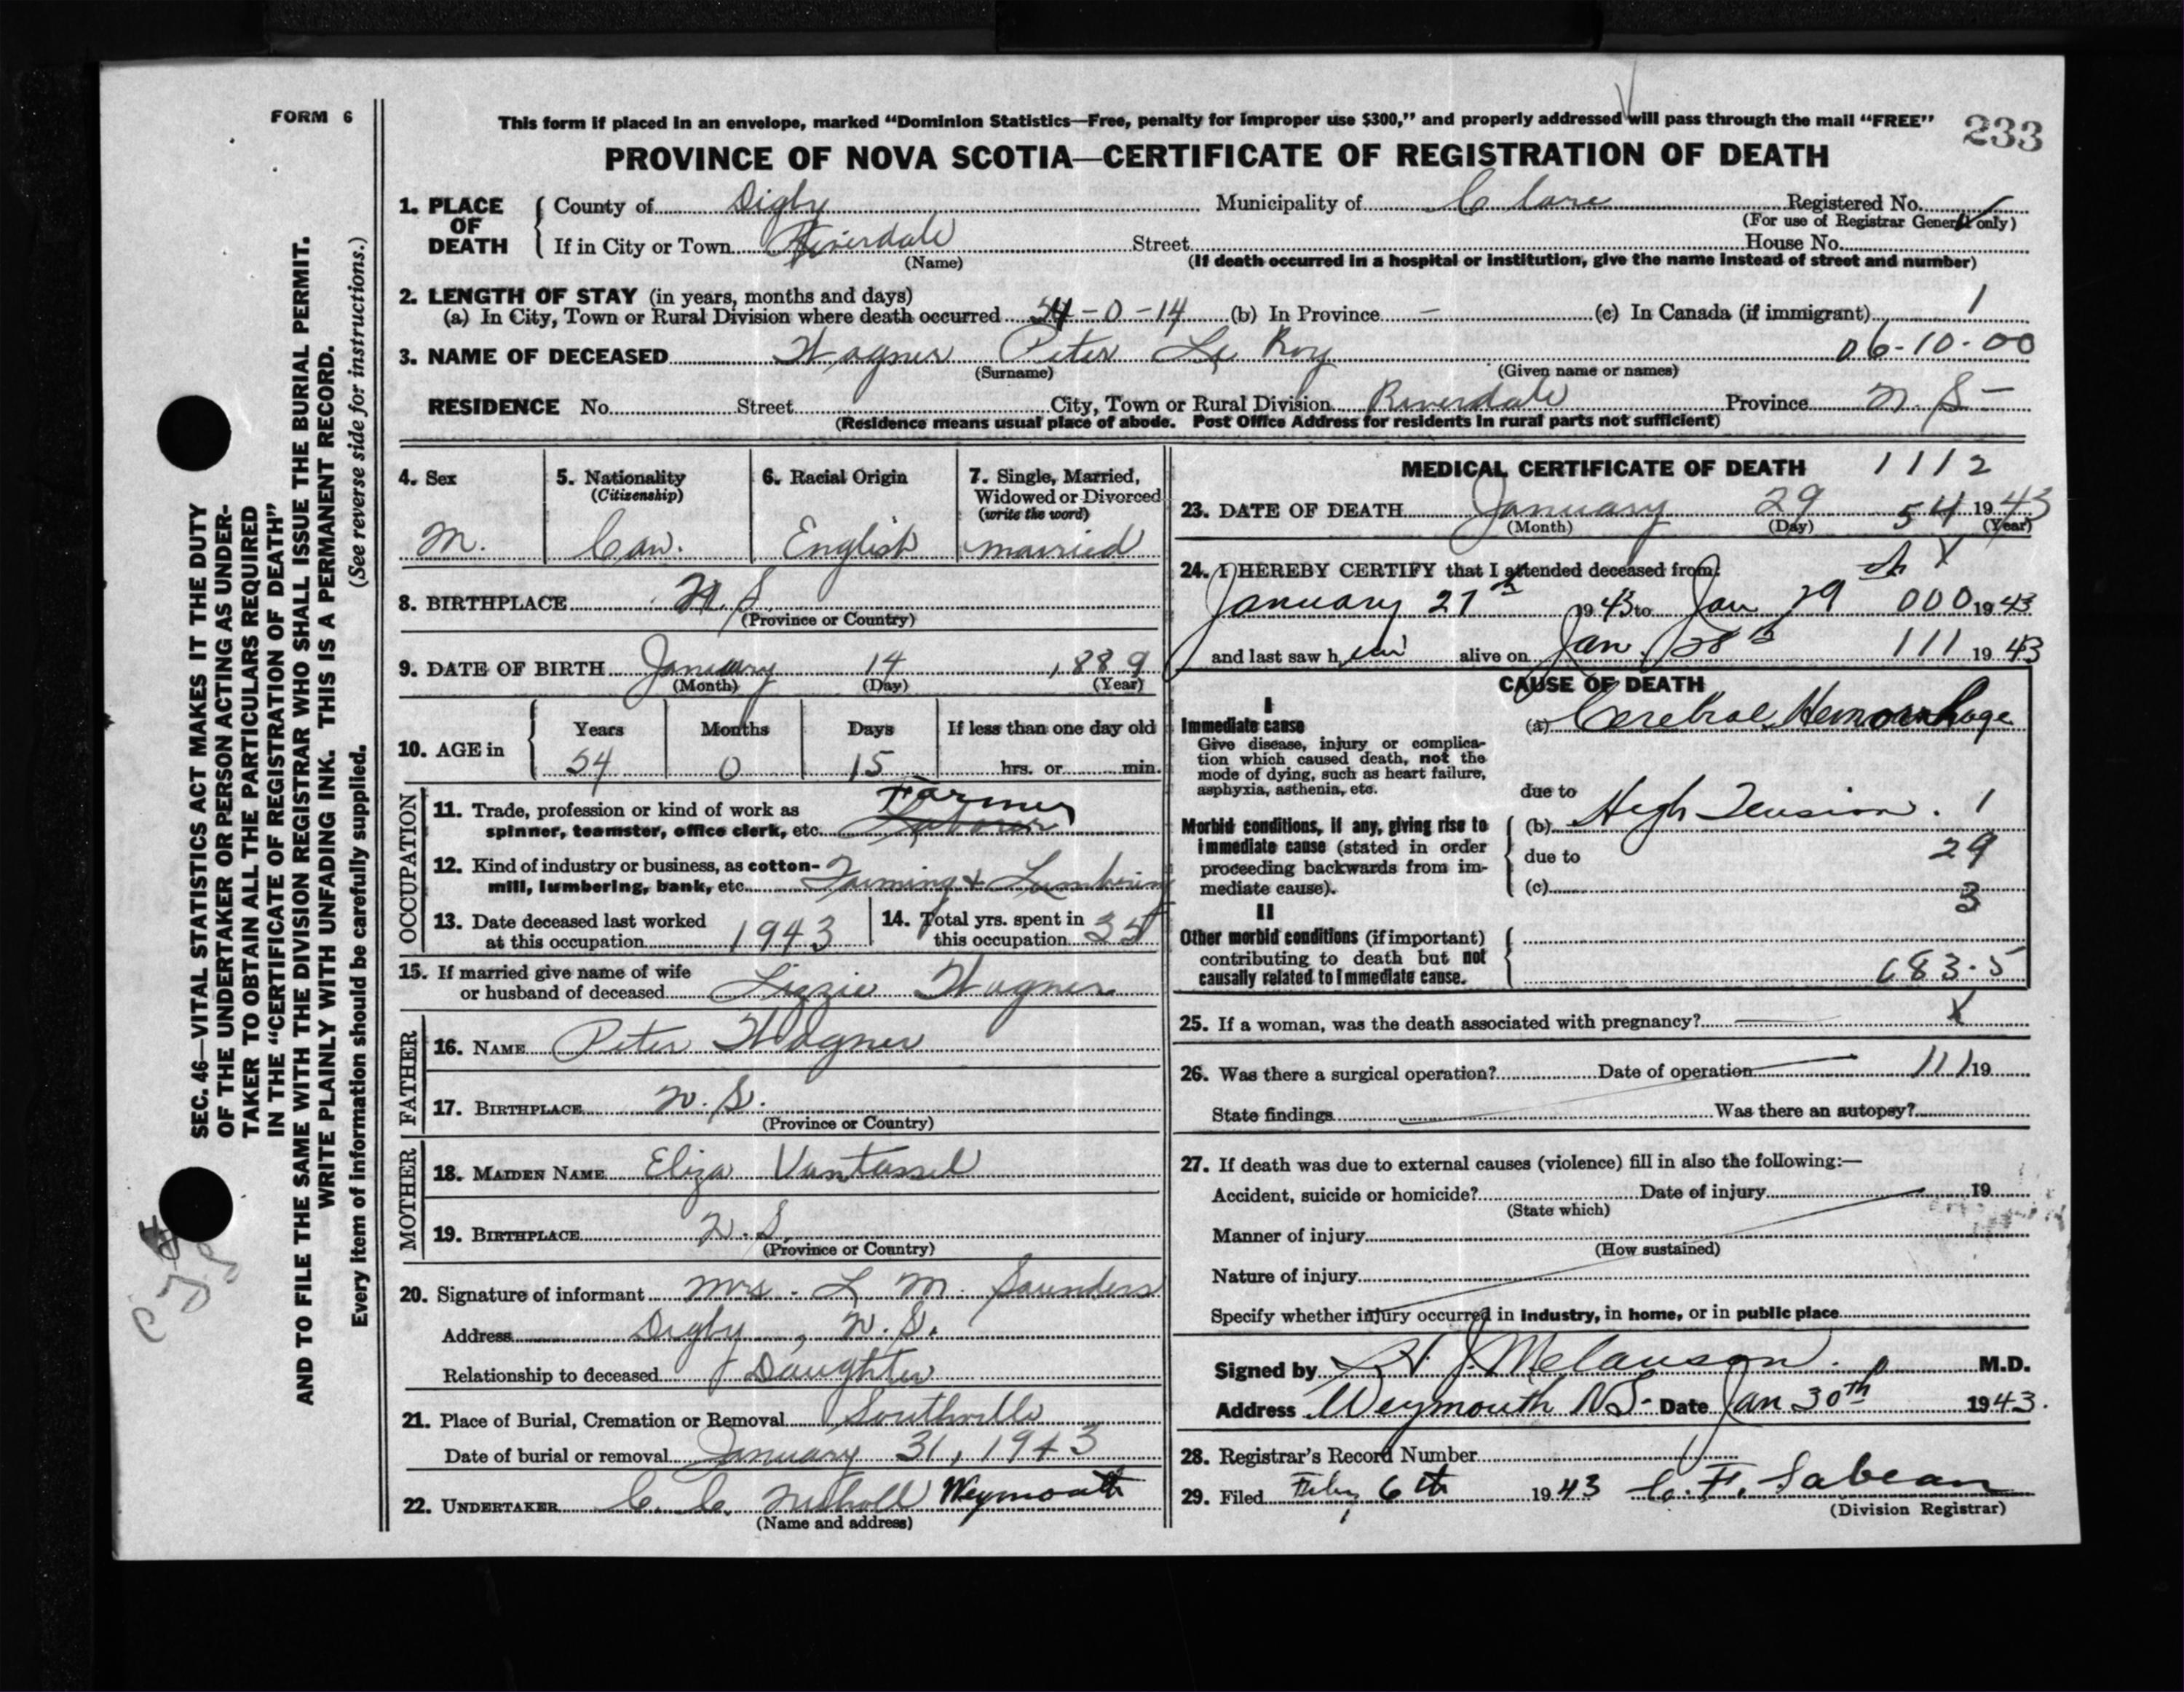 FORM 6
This form if placed in an envelope, marked “Dominion Statistics—Free, penalty for improper use $300,” and properly addressed will pass through the mail “FREE”
233
PROVINCE OF NOVA SCOTIA—CERTIFICATE OF REGISTRATION OF DEATH
SEC. 46—VITAL STATISTICS ACT MAKES IT THE DUTY
OF THE UNDERTAKER OR PERSON ACTING AS UNDER-
TAKER TO OBTAIN ALL THE PARTICULARS REQUIRED
IN THE “CERTIFICATE OF REGISTRATION OF DEATH”
AND TO FILE THE SAME WITH THE DIVISION REGISTRAR WHO SHALL ISSUE THE BURIAL PERMIT.
WRITE PLAINLY WITH UNFADING INK. THIS IS A PERMANENT RECORD.
Every item of information should be carefully supplied. (See reverse side for instructions.)
1. PLACE OF DEATH
County of Digby Municipality of Clare Registered No.
(For use of Registrar General only)
If in City or Town Riverdale Street House No.
(Name)
(If death occurred in a hospital or institution, give the name instead of street and number)
2. LENGTH OF STAY (in years, months and days)
(a) In City, Town or Rural Division where death occurred 54-0-14 (b) In Province — (c) In Canada (if immigrant) 1
3. NAME OF DECEASED Wagner Peter Le Roy 06-10-00
(Surname) (Given name or names)
RESIDENCE No. Street City, Town or Rural Division Riverdale Province N. S-
(Residence means usual place of abode. Post Office Address for residents in rural parts not sufficient)
4. Sex
M.
5. Nationality
(Citizenship)
Can.
6. Racial Origin
English
7. Single, Married,
Widowed or Divorced
(write the word)
married
8. BIRTHPLACE N. S.
(Province or Country)
9. DATE OF BIRTH January 14 1889
(Month) (Day) (Year)
10. AGE in
Years Months Days If less than one day old
54 0 15 hrs. or min.
OCCUPATION
11. Trade, profession or kind of work as Farmer
spinner, teamster, office clerk, etc. Laborer
12. Kind of industry or business, as cotton-
mill, lumbering, bank, etc. Farming & Lumbering
13. Date deceased last worked
at this occupation 1943
14. Total yrs. spent in
this occupation 35
15. If married give name of wife
or husband of deceased Lizzie Wagner
FATHER
16. NAME Peter Wagner
17. BIRTHPLACE N. S.
(Province or Country)
MOTHER
18. MAIDEN NAME Eliza Vantassel
19. BIRTHPLACE N. S.
(Province or Country)
20. Signature of informant Mrs. L M. Saunders
Address Digby, N. S.
Relationship to deceased Daughter
21. Place of Burial, Cremation or Removal Southville
Date of burial or removal January 31, 1943
22. UNDERTAKER C. C. Weymouth
(Name and address)
MEDICAL CERTIFICATE OF DEATH 1112
23. DATE OF DEATH January 29 54 1943
(Month) (Day) (Year)
24. I HEREBY CERTIFY that I attended deceased from:
January 27th 1943 to Jan 29 000 1943
and last saw h im alive on Jan. 28th 111 1943
CAUSE OF DEATH
I
Immediate cause
Give disease, injury or complica-
tion which caused death, not the
mode of dying, such as heart failure,
asphyxia, asthenia, etc.
(a) Cerebral Hemorrhage
due to
Morbid conditions, if any, giving rise to
immediate cause (stated in order
proceeding backwards from im-
mediate cause).
(b) High Tension. 1
due to 29
(c) 3
II
Other morbid conditions (if important)
contributing to death but not
causally related to immediate cause.
683.5
25. If a woman, was the death associated with pregnancy? — X
26. Was there a surgical operation? Date of operation 111 19
State findings Was there an autopsy?
27. If death was due to external causes (violence) fill in also the following:—
Accident, suicide or homicide? Date of injury 19
(State which)
Manner of injury
(How sustained)
Nature of injury
Specify whether injury occurred in industry, in home, or in public place
Signed by H. J. Melanson. M.D.
Address Weymouth N S- Date Jan 30th 1943.
28. Registrar's Record Number
29. Filed Feby 6th 1943 C. F. Sabean
(Division Registrar)